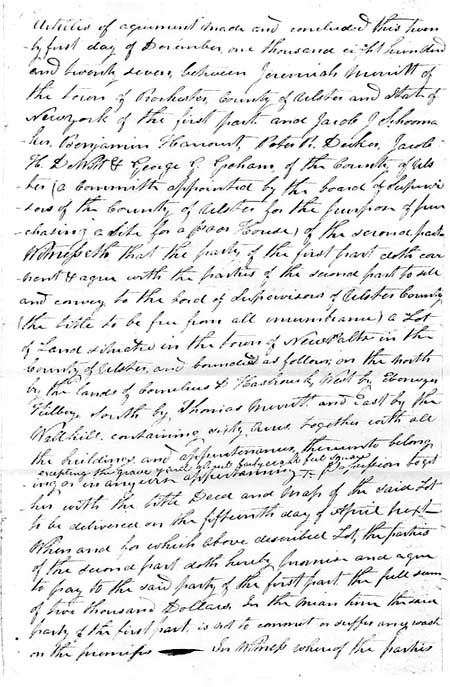 Articles of agreement made and concluded this twen
-ty first day of December, one thousand eight hundred
and twenty seven, between Jeremiah Merritt of
the town of Rochester, County of Ulster and State of
Newyork of the first part and Jacob J. Schoonma
-ker, Benjamin Harcourt, Decker, Jacob
H. DeWitt & George G. Graham, of the County of Uls
-ter (a Committe appointed by the board of supervi
-sors of the County of Ulster for the purpose of pur
-chasing a Site for a Poor House) of the second part
Witnesseth that the party of the first part doth cov
-nent & agree with the parties of the second part to sell
and convey to the bord of supervisors of Ulster County
(the title to be free from all incumbrance) a Lot
of Land situated in the town of New Paltz in the
County of Ulster, and bounded as follows, on the north
by the lands of Cornelius D. Hasbrouck, West by Ebenezer
South by Thomas Merritt and East by the
Wallkill, containing sixty Acres together with all
the buildings and appurtenances, thereunto belong
excepting the grave yard about forty eight feet square
ing or in anywise appertaining
with the title Deed and Map of the said Lot
to be delivered on the fifteenth day of April next
When and for which above described Lot, the parties
of the second part doth hereby promise and agree
to pay to the said party of the first part the full sum
of five thousand Dollars. In the mean time the said
party of the first part, is not to commit or suffer any wast
on the premises In Witness whereof the parties